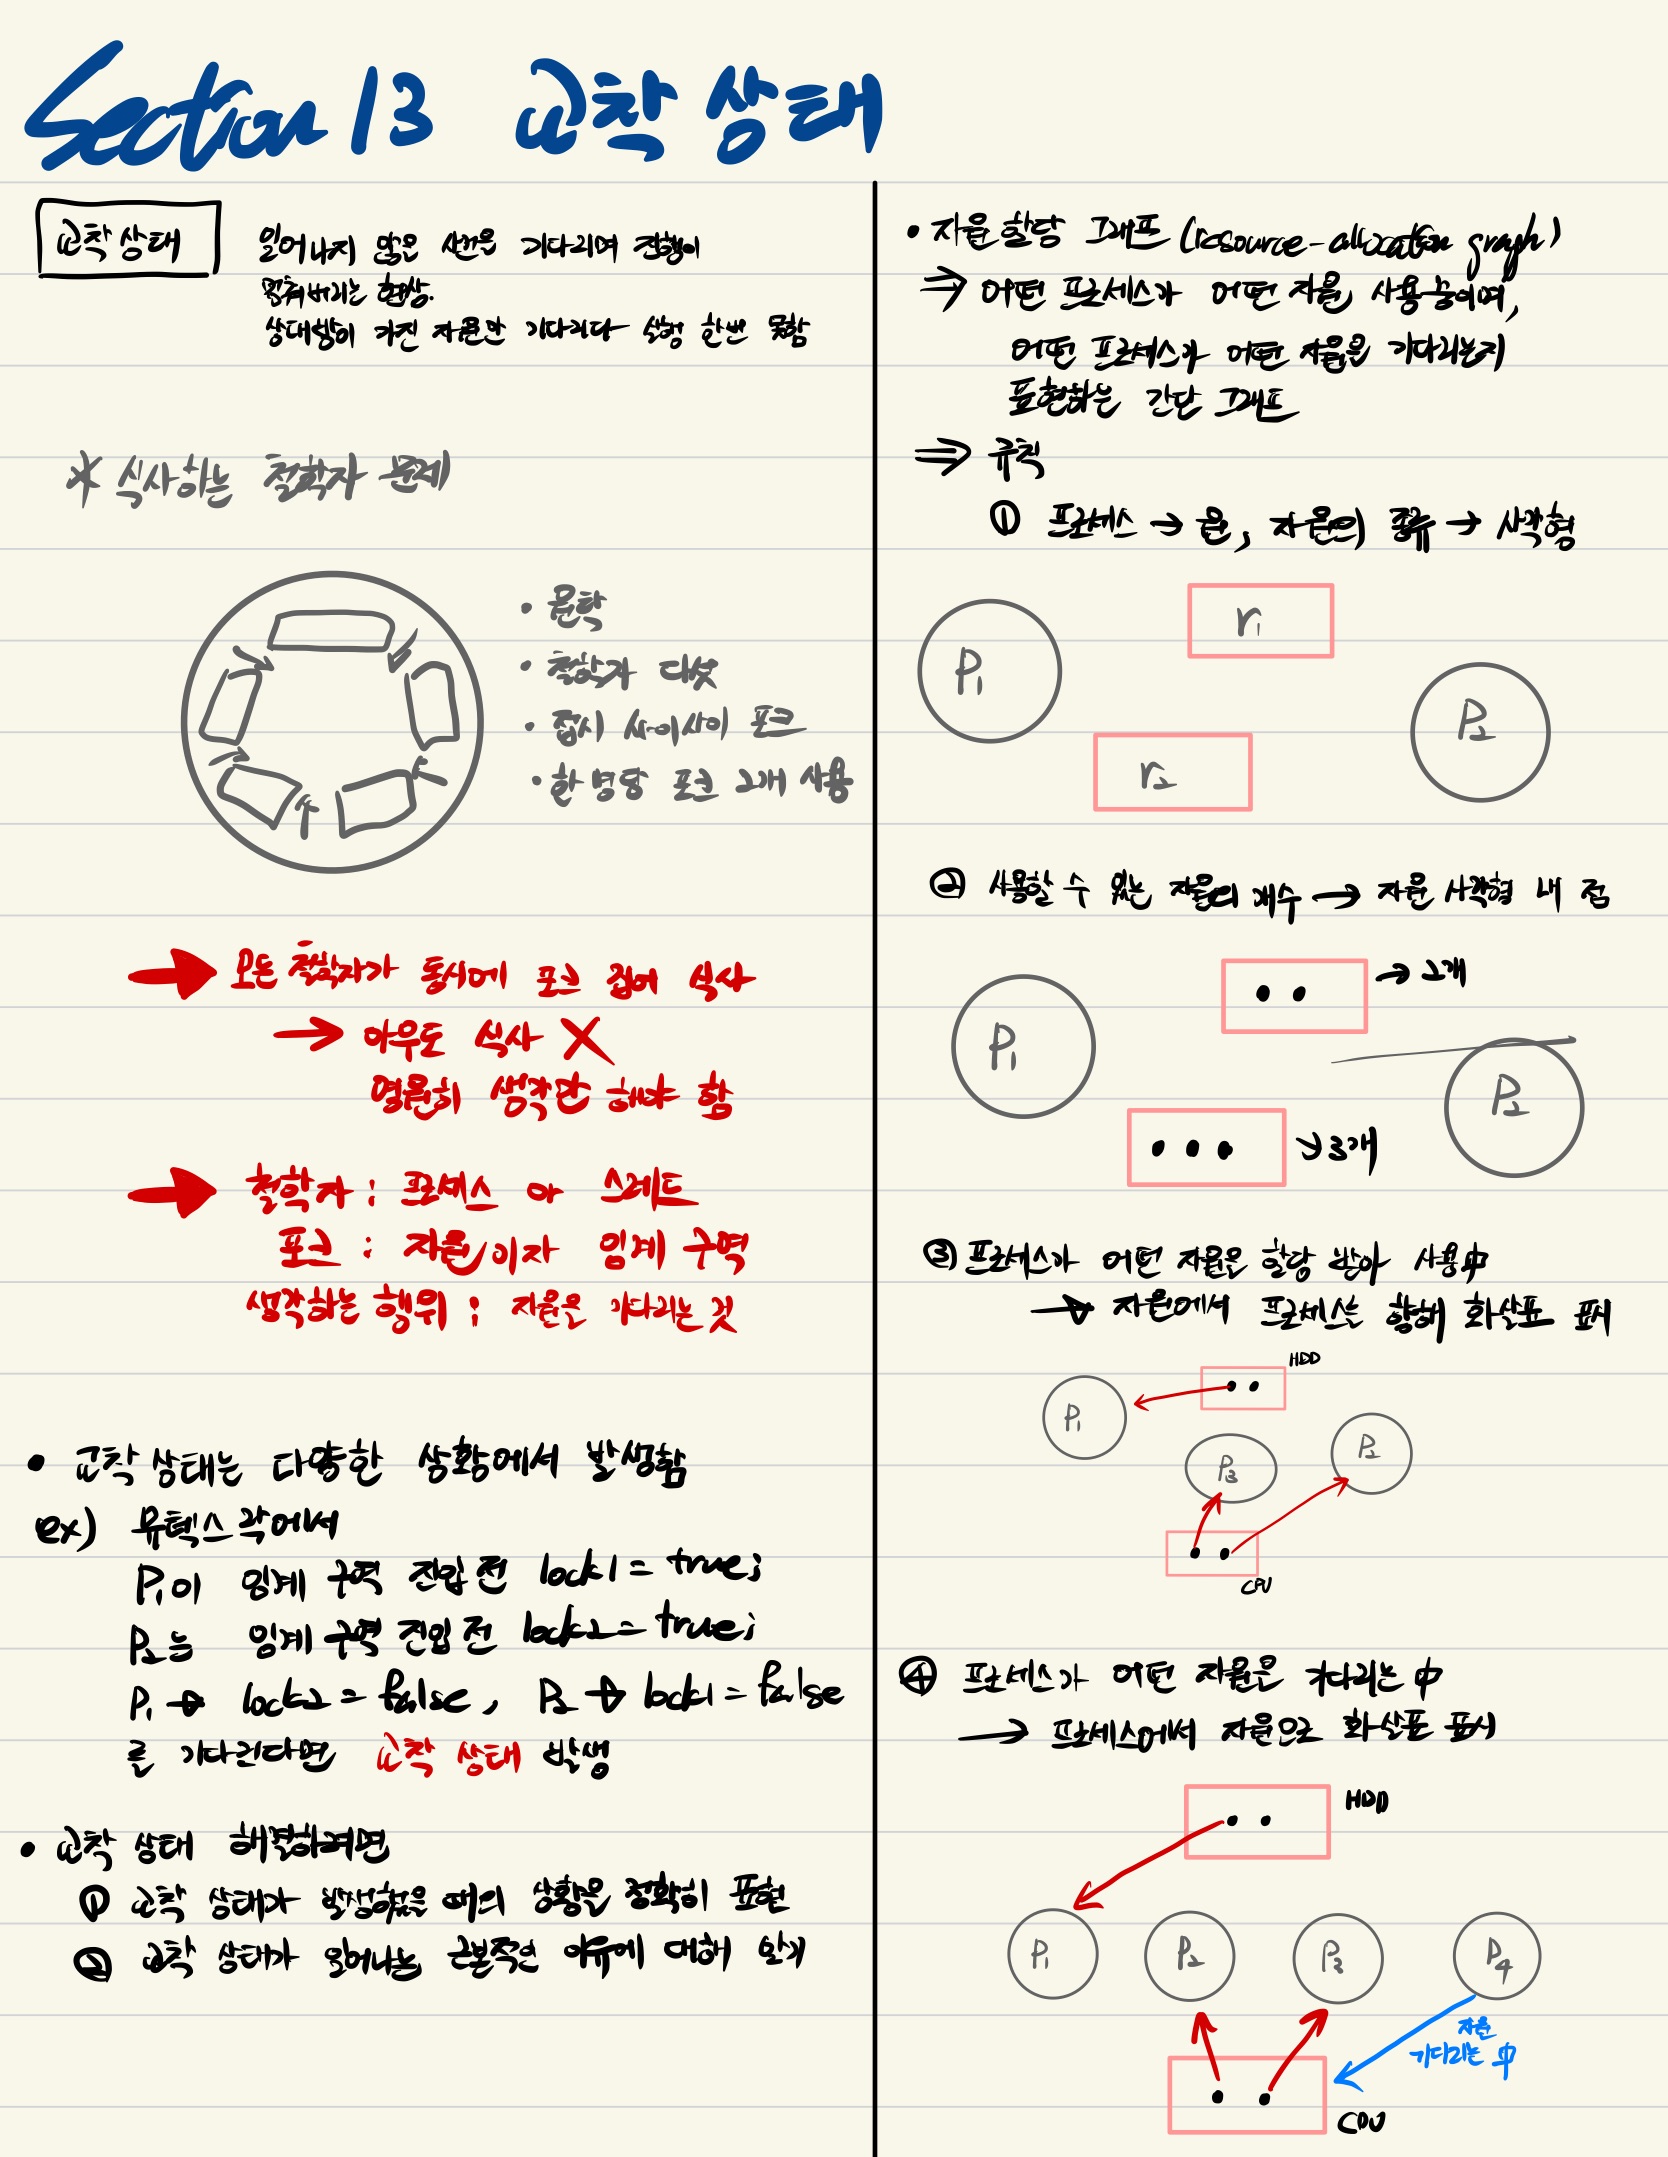 Section 13 교착 상태
교착 상태
일어나지 않은 사건을 기다리며 진행이
멈춰버리는 현상.
상대방이 가진 자원만 기다리다 실행 한번 못함
* 식사하는 철학자 문제
• 원탁
• 철학자 다섯
• 접시 사이사이 포크
• 한 명당 포크 2개 사용
모든 철학자가 동시에 포크 집어 식사
→ 아무도 식사 X
영원히 생각만 해야 함
철학자 : 프로세스 or 스레드
포크 : 자원이자 임계 구역
생각하는 행위 : 자원을 기다리는 것
• 교착 상태는 다양한 상황에서 발생함
ex) 뮤텍스 락에서
P1이 임계 구역 진입 전 lock1 = true;
P2는 임계 구역 진입 전 lock2 = true;
P1 → lock2 = false, P2 → lock1 = false
를 기다린다면 교착 상태 발생
• 교착 상태 해결하려면
① 교착 상태가 발생했을 때의 상황을 정확히 표현
② 교착 상태가 일어나는 근본적인 이유에 대해 알기
• 자원 할당 그래프 (resource-allocation graph)
⇒ 어떤 프로세스가 어떤 자원 사용중이며,
어떤 프로세스가 어떤 자원을 기다리는지
표현하는 간단 그래프
⇒ 규칙
① 프로세스 → 원, 자원의 종류 → 사각형
P1
r1
P2
r2
② 사용할 수 있는 자원의 개수 → 자원 사각형 내 점
→ 2개
P1
P2
→ 3개
③ 프로세스가 어떤 자원을 할당 받아 사용中
→ 자원에서 프로세스를 향해 화살표 표시
HDD
P1
P3
P2
CPU
④ 프로세스가 어떤 자원을 기다리는 中
→ 프로세스에서 자원으로 화살표 표시
HDD
P1
P2
P3
P4
자원
기다리는 中
CPU